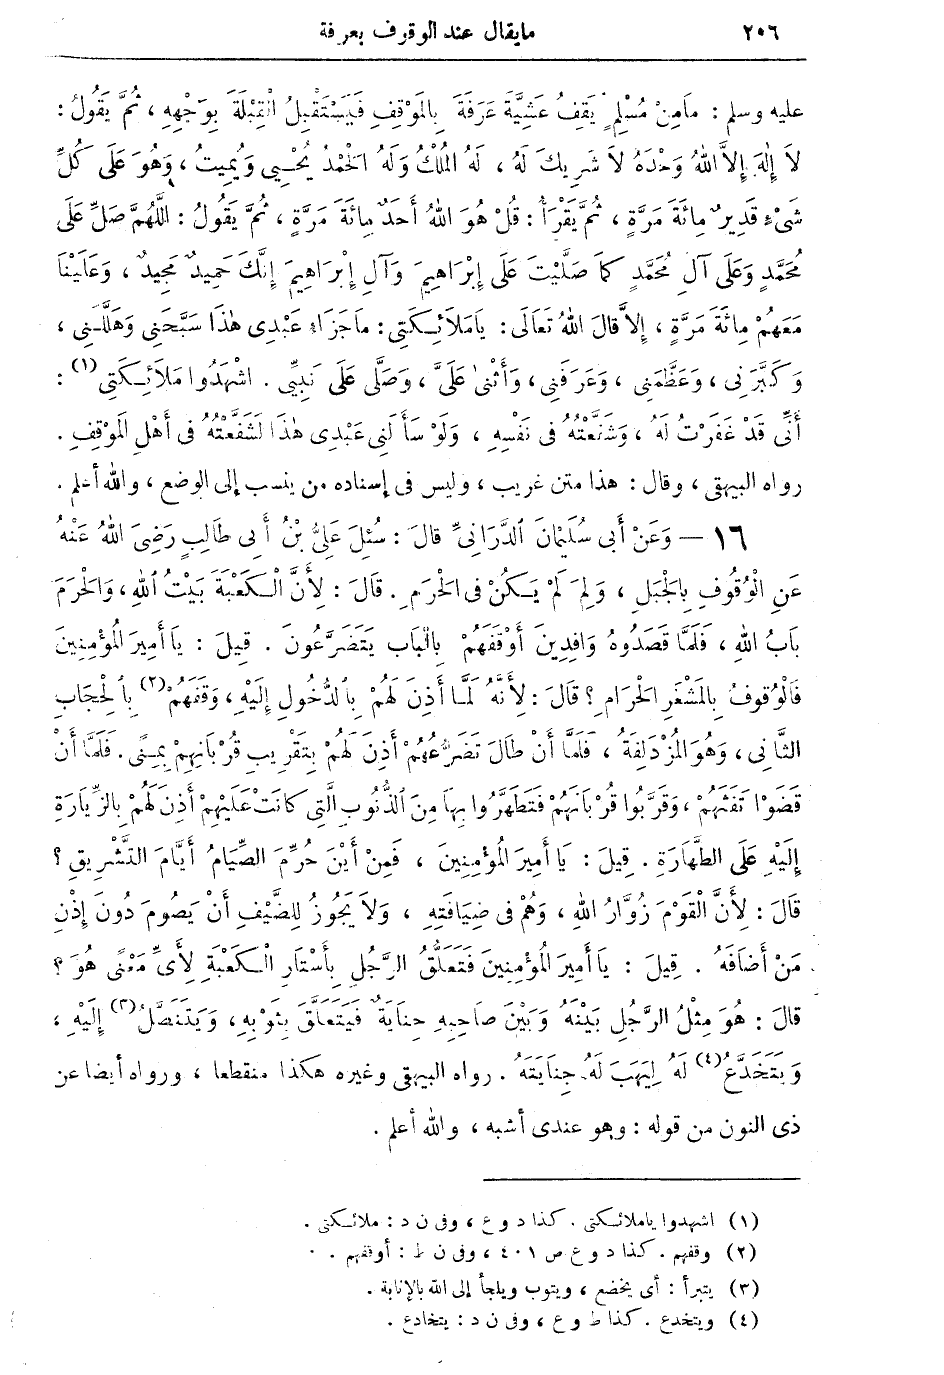 ٢٠٦ مايقال عند الوقوف بعرفة
عليه وسلم : مَامِنْ مُسْلِمٍ يَقِفُ عَشِيَّةَ عَرَفَةَ بِالمَوْقِفِ فَيَسْتَقْبِلُ الْقِبْلَةَ بِوَجْهِهِ ، ثُمَّ يَقُولُ :
لاَ إِلٰهَ إِلاَّ اللهُ وَحْدَهُ لاَ شَرِيكَ لَهُ ، لَهُ المُلْكُ وَلَهُ الحَمْدُ يُحْيِي وَيُمِيتُ ، وَهُوَ عَلَى كُلِّ
شَيْءٍ قَدِيرٌ مِائَةَ مَرَّةٍ ، ثُمَّ يَقْرَأُ : قُلْ هُوَ اللهُ أَحَدٌ مِائَةَ مَرَّةٍ ، ثُمَّ يَقُولُ : اللَّهُمَّ صَلِّ عَلَى
مُحَمَّدٍ وَعَلَى آلِ مُحَمَّدٍ كَمَا صَلَّيْتَ عَلَى إِبْرَاهِيمَ وَآلِ إِبْرَاهِيمَ إِنَّكَ حَمِيدٌ مَجِيدٌ ، وَعَلَيْنَا
مَعَهُمْ مِائَةَ مَرَّةٍ ، إِلاَّ قَالَ اللهُ تَعَالَى : يَامَلاَئِكَتِي : مَاجَزَاءُ عَبْدِى هٰذَا سَبَّحَنِي وَهَلَّلَنِي ،
وَكَبَّرَنِي ، وَعَظَّمَنِي ، وَعَرَفَنِي ، وَأَثْنَى عَلَيَّ ، وَصَلَّى عَلَى نَبِيِّي . اشْهَدُوا مَلَائِكَتِي (١) :
أَنِّي قَدْ غَفَرْتُ لَهُ ، وَشَفَّعْتُهُ فى نَفْسِهِ ، وَلَوْ سَأَلَنِي عَبْدِى هٰذَا لَشَفَّعْتُهُ فى أَهْلِ المَوْقِفِ .
رواه البيهقى ، وقال : هذا متن غريب ، وليس فى إسناده من ينسب إلى الوضع ، والله أعلم .
١٦ — وَعَنْ أَبِي سُلَيْمَانَ الدَّرَانِيِّ قَالَ : سُئِلَ عَلِيُّ بْنُ أَبِي طَالِبٍ رَضِيَ اللهُ عَنْهُ
عَنِ الْوُقُوفِ بِالجَبَلِ ، وَلِمَ لَمْ يَكُنْ فِى الحَرَمِ . قَالَ : لِأَنَّ الْكَعْبَةَ بَيْتُ اللهِ ، وَالحَرَمَ
بَابُ اللهِ ، فَلَمَّا قَصَدُوهُ وَافِدِينَ أَوْقَفَهُمْ بِالْبَابِ يَتَضَرَّعُونَ . قِيلَ : يَا أَمِيرَ المُؤْمِنِينَ
فَالْوُقُوفُ بِالمَشْعَرِ الحَرَامِ ؟ قَالَ : لِأَنَّهُ لَمَّا أَذِنَ لَهُمْ بِالدُّخُولِ إِلَيْهِ ، وَقَفَهُمْ (٢) بِالْحِجَابِ
الثَّانِي ، وَهُوَ المُزْدَلِفَةُ ، فَلَمَّا أَنْ طَالَ تَضَرُّعُهُمْ أَذِنَ لَهُمْ بِتَقْرِيبِ قُرْبَانِهِمْ بِمِنًى . فَلَمَّا أَنْ
قَضَوْا تَفَثَهُمْ ، وَقَرَّبُوا قُرْبَانَهُمْ فَتَطَهَّرُوا بِهَا مِنَ الذُّنُوبِ الَّتِي كَانَتْ عَلَيْهِمْ أَذِنَ لَهُمْ بِالزِّيَارَةِ
إِلَيْهِ عَلَى الطَّهَارَةِ . قِيلَ : يَا أَمِيرَ المُؤْمِنِينَ ، فَمِنْ أَيْنَ حُرِّمَ الصِّيَامُ أَيَّامَ التَّشْرِيقِ ؟
قَالَ : لِأَنَّ الْقَوْمَ زُوَّارُ اللهِ ، وَهُمْ فى ضِيَافَتِهِ ، وَلاَ يَجُوزُ لِلضَّيْفِ أَنْ يَصُومَ دُونَ إِذْنِ
مَنْ أَضَافَهُ . قِيلَ : يَا أَمِيرَ المُؤْمِنِينَ فَتَعَلُّقُ الرَّجُلِ بِأَسْتَارِ الْكَعْبَةِ لِأَيِّ مَعْنًى هُوَ ؟
قَالَ : هُوَ مِثْلُ الرَّجُلِ بَيْنَهُ وَبَيْنَ صَاحِبِهِ جِنَايَةٌ فَيَتَعَلَّقَ بِثَوْبِهِ ، وَيَتَنَصَّلُ (٣) إِلَيْهِ ،
وَيَتَخَدَّعُ (٤) لَهُ لِيَهَبَ لَهُ جِنَايَتَهُ . رواه البيهقى وغيره هكذا منقطعا ، ورواه أيضا عن
ذى النون من قوله : وهو عندى أشبه ، والله أعلم .
(١) اشهدوا ياملائكتى . كذا د و ع ، وفى ن د : ملائكتى .
(٢) وقفهم . كذا د و ع ص ٤٠١ ، وفى ن ط : أوقفهم .
(٣) يتبرأ : أى يخضع ، ويتوب ويلجأ إلى الله بالإنابة .
(٤) ويتخدع . كذا ط و ع ، وفى ن د : يتخادع .